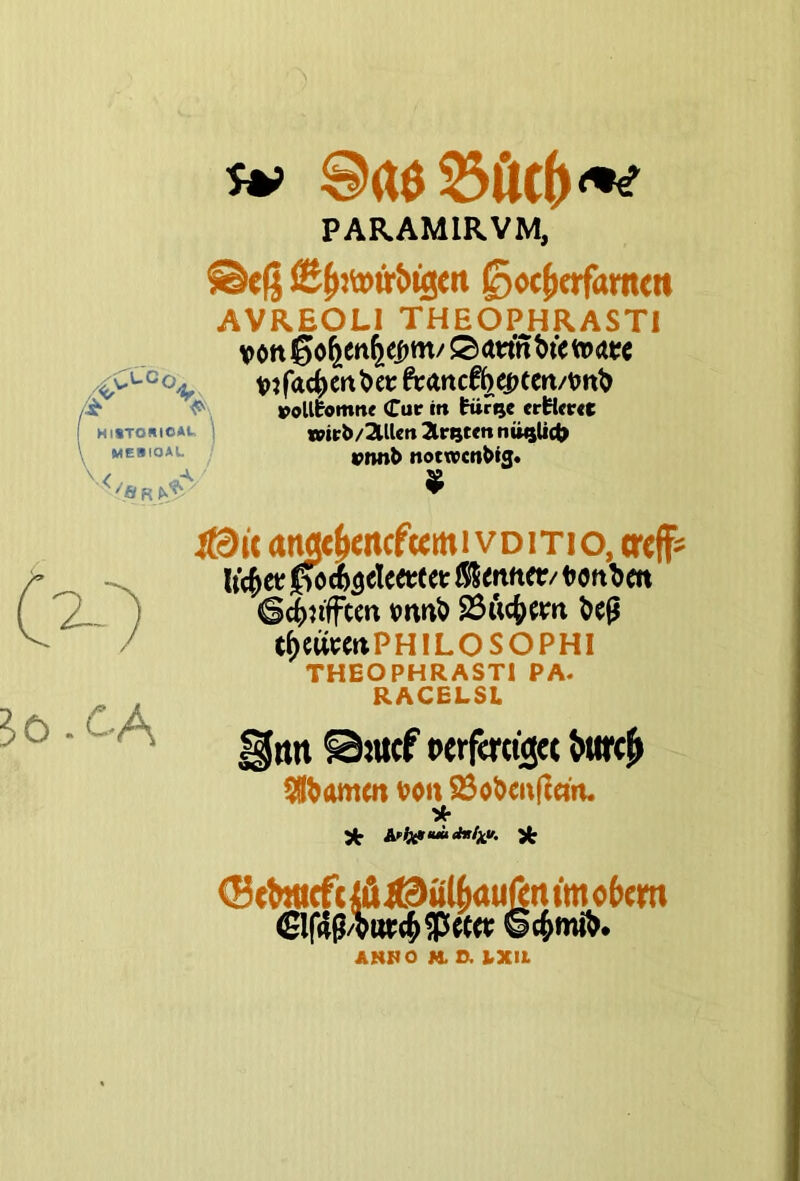 Das Bůch
PARAMIRVM,
Deß Ehrwirdigen Hocherfarnen
AVREOLI THEOPHRASTI
von Hohenheym/ Darin̄ die ware
vrsachen der kranckheyten/vnd
vollkomne Cur in kürtze erkleret
wirb/Allen Artzten nützlich
vnnd notwendig.
WELLCOME
HISTORICAL
MEDICAL
LIBRARY
Mit angehencktem IVDITIO, treff-
licher Hochgeleerter Menner/ von den
Schrifften vnnd Büchern deß
theüren PHILOSOPHI
THEOPHRASTI PA-
RACELSI.
(2)
30.CA
Jnn Druck verfertiget durch
Adamen von Bodenstein.
Getruckt zů Mülhausen im obern
Elsäß/durch Peter Schmid.
ANNO M. D. LXII.